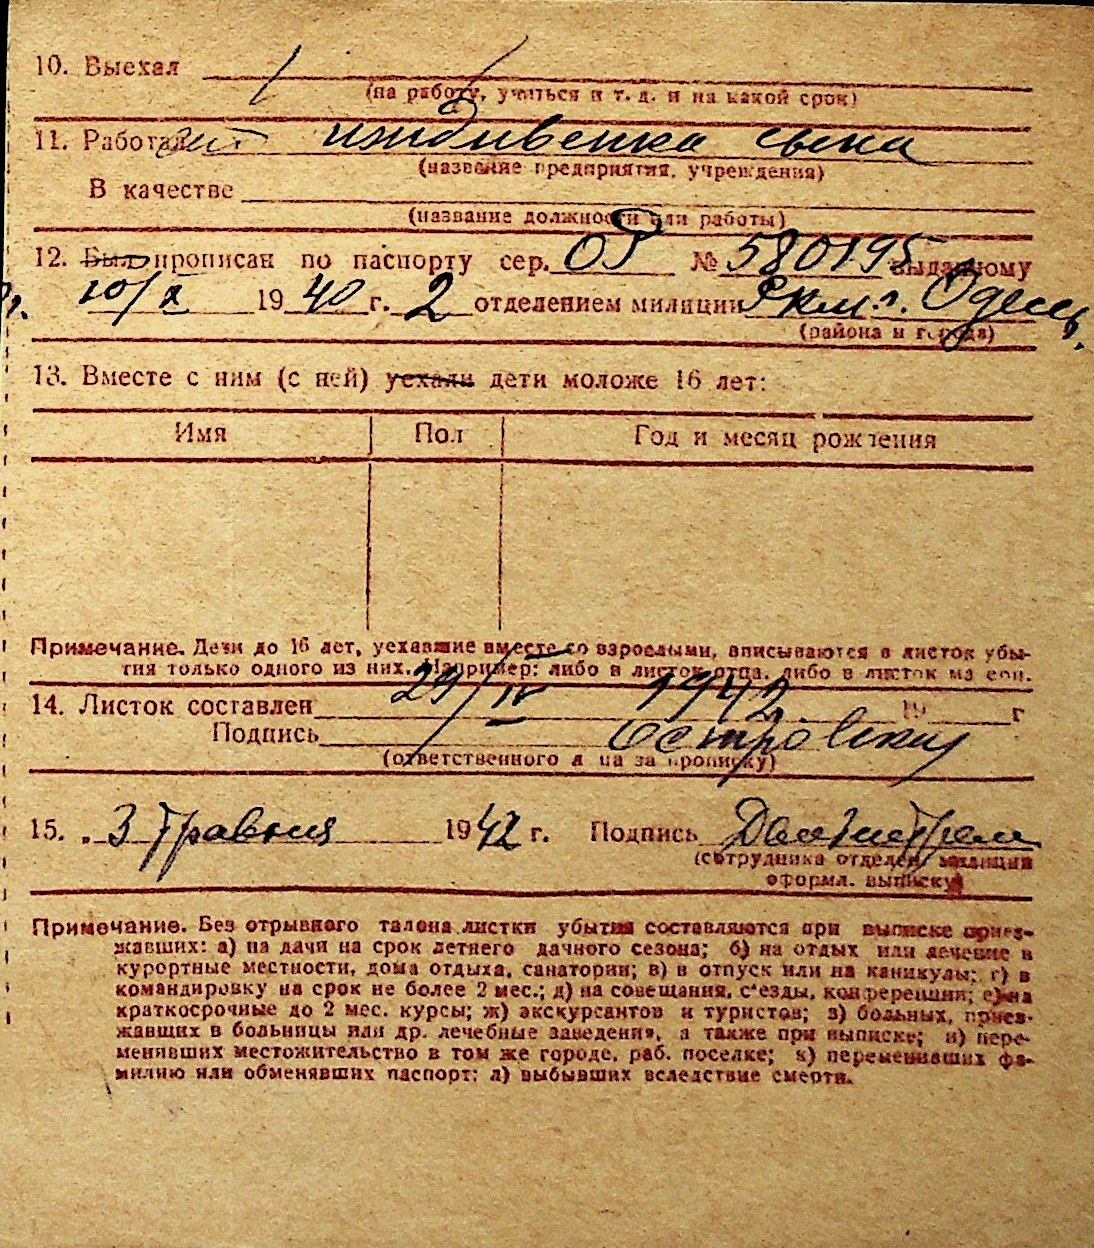 10. Выехал
(на работу, учиться и т. д. и на какой срок)
11. Работал иждивенка сына
(название предприятия, учреждения)
В качестве
(название должности или работы)
12. Был прописан по паспорту сер. № 580195 выданному
10/X 1940 г. 2 отделением милиции г. Одессы
(района и города)
13. Вместе с ним (с ней) уехали дети моложе 16 лет:
Имя Пол Год и месяц рождения
Примечание. Дети до 16 лет, уехавшие вместе со взрослыми, вписываются в листок убы-
тия только одного из них. Например: либо в листок отца, либо в листок матери.
14. Листок составлен 29/IV 1942 19 г
Подпись Островский
(ответственного лица за прописку)
15. „ 3 травня 1942 г. Подпись
(сотрудника отделен. милиции
оформл. выписку)
Примечание. Без отрывного талона листки убытия составляются при выписке приез-
жавших: а) на дачи на срок летнего дачного сезона; б) на отдых или лечение в
курортные местности, дома отдыха, санатории; в) в отпуск или на каникулы; г) в
командировку на срок не более 2 мес.; д) на совещания, с'езды, конференции; е) на
краткосрочные до 2 мес. курсы; ж) экскурсантов и туристов; з) больных, приез-
жавших в больницы или др. лечебные заведения, а также при выписке; и) пере-
менивших местожительство в том же городе, раб. поселке; к) переменивших фа-
милию или обменявших паспорт; л) выбывших вследствие смерти.